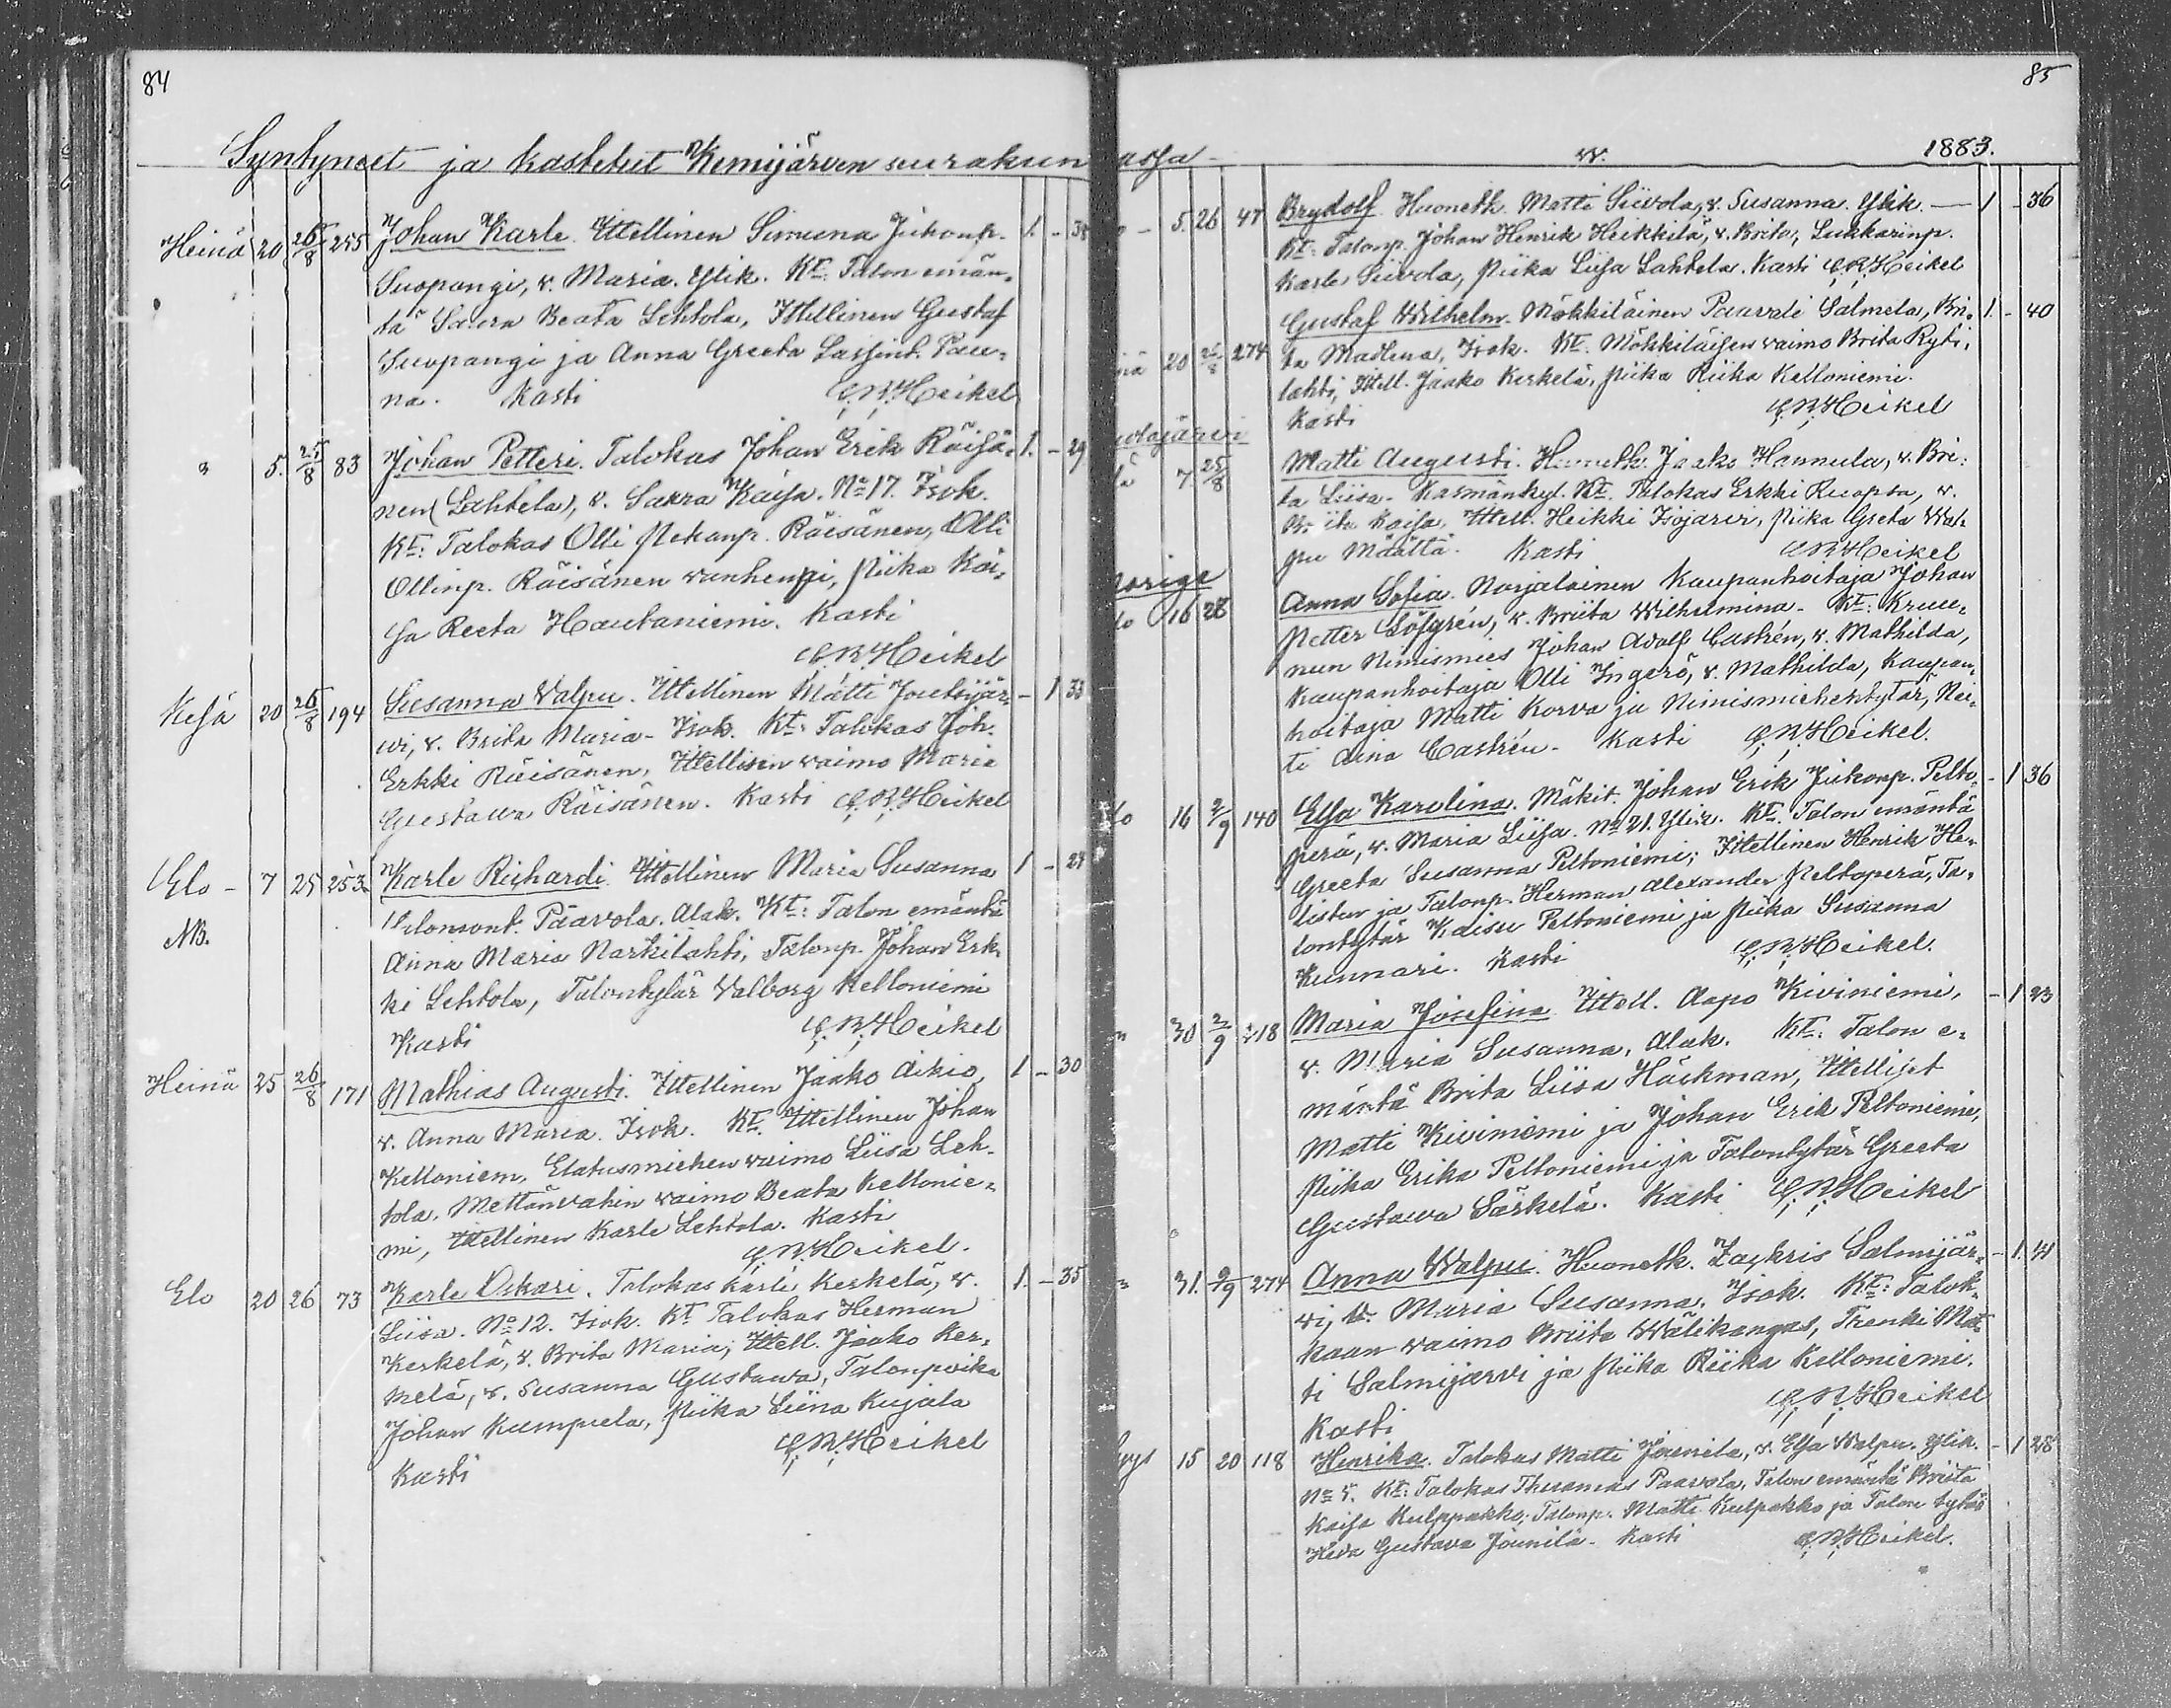 84
Syntyneet ja kastetut Kemijärven seurakun
Heinä 20 26/8 255 Johan Karle. Itellinen Simuna Juhonp. 1. - 38
Suopangi, v. Maria. Ylik. Kt: Talon emän-
tä Saara Beata Lehtola, Itellinen Gustaf
Suopangi ja Anna Greeta Lassint. Pau-
na. Kasti C.R.Heikel
" 5. 25/8 83 Johan Petteri. Talokas Johan Erik Räisä- 1. - 29
nen (Lahtela), v. Saara Kaisa. No 17. Isok.
Kt: Talokas Olli Pekanp. Räisänen, Olli
Ollinp. Räisänen vanhempi, Piika Kai-
sa Reeta Hautaniemi. Kasti
C.R.Heikel
Kesä 20 26/8 194 Susanna Valpu. Itellinen Matti Joutsijär- - 1 33
vi, v. Brita Maria - Isok. Kt: Talokas Joh.
Erkki Räisänen, Itellisen vaimo Maria
Gustava Räisänen. Kasti C.R.Heikel
Elo - 7 25 253 Karle Richardi. Itellinen Maria Susanna 1 - 27
NB. Salomont. Paavola. Alak. Kt: Talon emäntä
Anna Maria Narkilahti, Talonp. Johan Erk-
ki Lehtola, Talontytär Valborg Kelloniemi
Kasti C.R.Heikel
Heinä 25 26/8 171 Mathias Augusti. Itellinen Jaako Aikio, 1 - 30
v. Anna Maria. Isok. Kt. Itellinen Johan
Kelloniem, Elatusmiehen vaimo Liisa Leh-
tola. Mettänvahin vaimo Beata Kellonie-
mi, Itellinen Karle Lehtola. Kasti
C.R.Heikel.
Elo 20 26 73 Karle Oskari. Talokas Karle Kerkelä, v. 1. - 35
Liisa. No 12. Isok. Kt Talokas Herman
Kerkelä, v. Brita Maria, Itell. Jaako Ker-
kelä, v. Susanna Gustava, Talonpoika
Johan Kumpula, Piika Liina Kujala
Kasti C.R.Heikel
85
assa - v. 1883.
o - 5. 26 47 Brydolf. Huoneth. Matti Siivola, v. Susanna. Ylik. - 1 - 36
Kt: Talonp. Johan Henrik Heikkilä, v. Brita, Lukkarinp.
Karle Siivola, Piika Liisa Lahtela. Kasti C.R.Heikel
nä 20 25/8 274 Gustaf Wilhelm. Mökkiläinen Paavali Salmela, Bri- 1. - 40
ta Madlena, Isok. Kt. Mökkiläisen vaimo Brita Ryti-
lahti, Itell. Jaako Kerkelä, Piika Riika Kelloniemi.
Kasti C.R.Heikel
7 25/8 Matti Augusti. Huoneth. Jaako Hannula, v. Bri-
ta Liisa - Kasmänkyl. Kt. Talokas Erkki Ruopsa, v.
Brita Kaisa, Itell. Heikki Isojärvi, Piika Greta Wal-
pu Määttä. Kasti C.R.Heikel
Norige
lo 16 28 Anna Sofia. Norjalainen Kaupanhoitaja Johan
Petter Löfgrén, v. Briita Wilhelmina - Kt: Kruu-
nun Nimismies Johan Adolf Castrén, v. Mathilda,
Kaupanhoitaja Olli Ingerö, v. Mathilda, Kaupan-
hoitaja Matti Korva ja Nimismiehentytär, Nei-
ti Aina Castrén - Kasti C.R.Heikel.
lo 16 2/9 140 Elsa Karolina. Mäkit. Johan Erik Juhonp. Pelto- - 1 36
perä, v. Maria Liisa. No 21. Ylik. Kt. Talon emäntä
Greeta Susanna Peltoniemi, Itellinen Henrik He-
listen ja Talonp. Herman Alexander Peltoperä, Ta-
lontytär Kaisu Peltoniemi ja Piika Susanna
Kunnari. Kasti C.R.Heikel.
" 30 2/9 218 Maria Josefina Itell. Aapo Kiviniemi, - 1 23
v. Maria Susanna, Alak. Kt: Talon e-
mäntä Brita Liisa Häckman, Itelliset
Matti Kiviniemi ja Johan Erik Peltoniemi,
Piika Erika Peltoniemi ja Talontytär Greeta
Gustava Särkelä. Kasti C.R.Heikel
" 31. 9/9 274 Anna Walpu. Huoneth. Zachris Salmijär- - 1. 41
vi, v. Maria Susanna. Isok. Kt: Talok-
kaan vaimo Briita Wälikangas, Trenki Mat-
ti Salmijärvi ja Piika Riika Kelloniemi.
Kasti C.R.Heikel
yys 15 20 118 Henrika. Talokas Matti Jounila, v. Elsa Walpu. Ylik. - 1 28
No 5. Kt: Talokas Thuomas Paavola, Talon emäntä Briita
Kaisa Kulppakko, Talonp. Matti Kulpakko ja Talon tytär
Heva Gustava Jounila - Kasti C.R.Heikel.